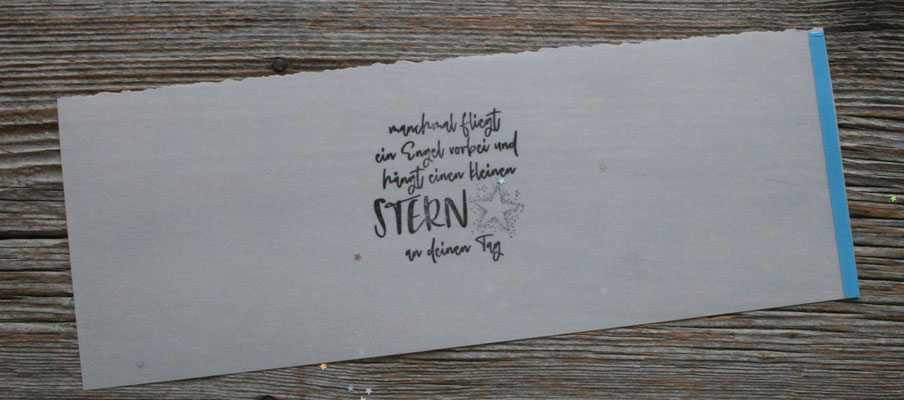 manchmal fliegt
ein Engel vorbei und
hängt einen kleinen
STERN
an deinen Tag